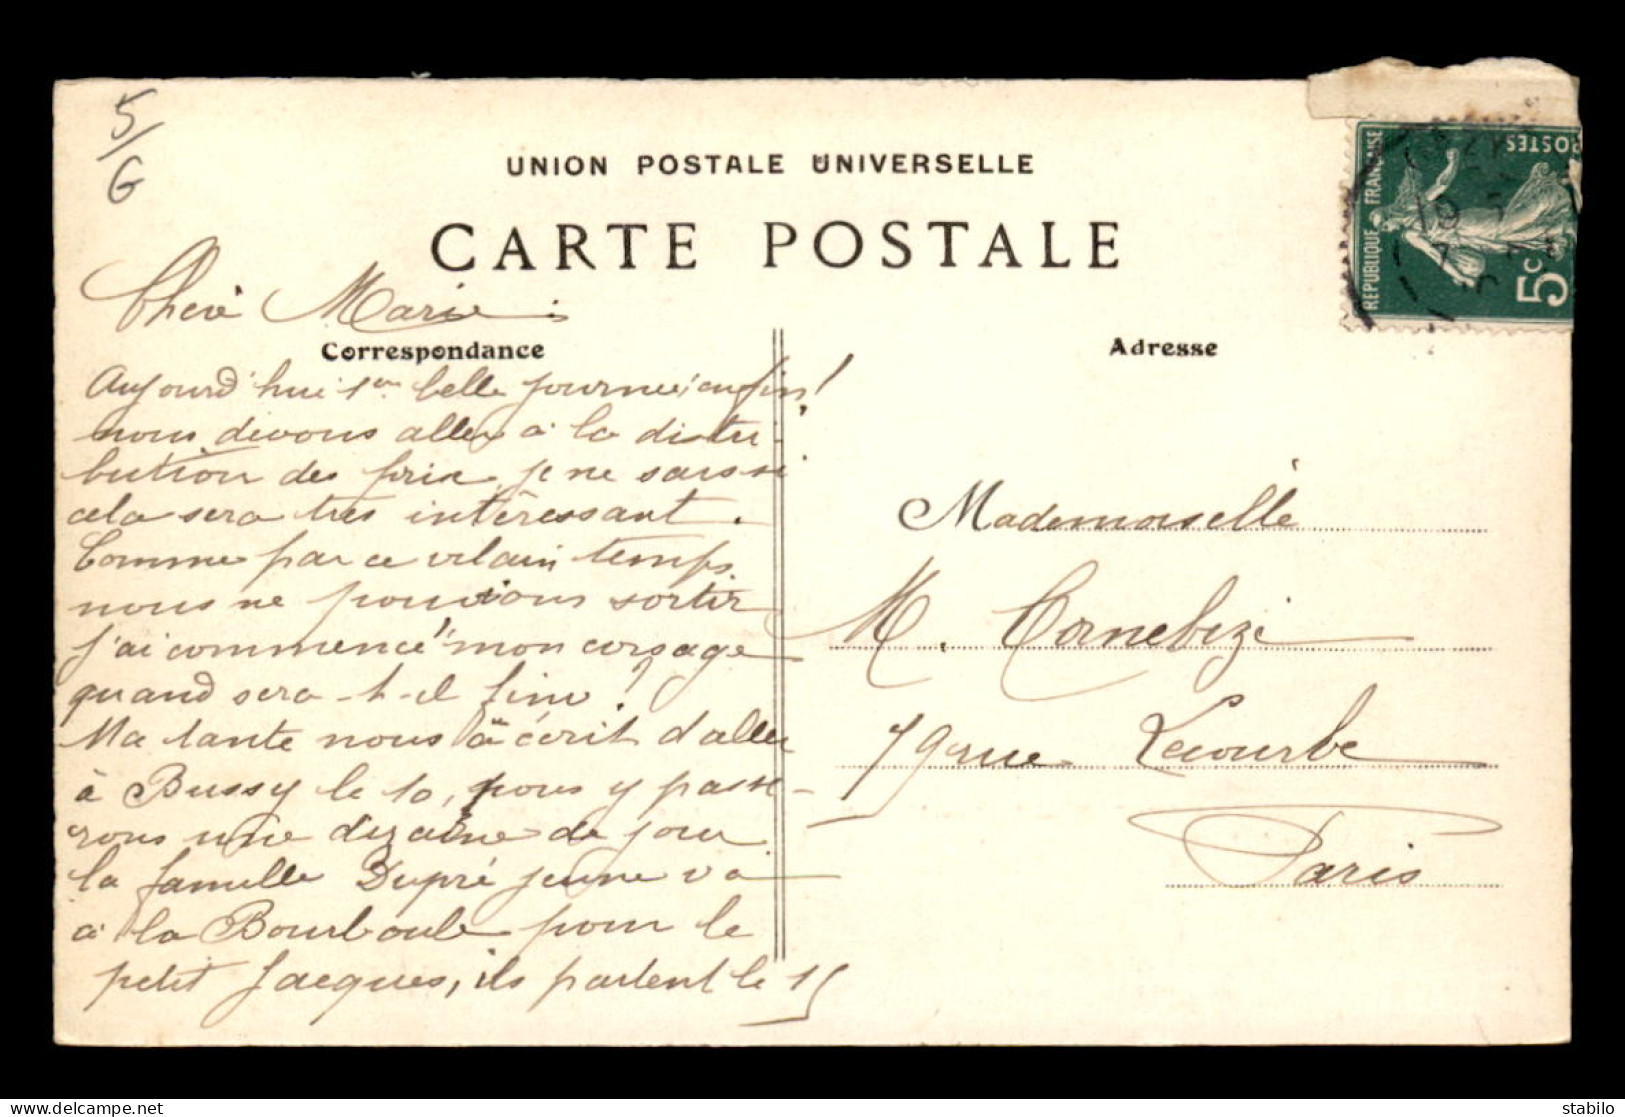 5/G
UNION POSTALE UNIVERSELLE
CARTE POSTALE
Chère Marie
Correspondance
Aujourd'hui 1ère belle journée enfin!
nous devons aller à la distri-
bution des prix, je ne sais si
cela sera très intéressant.
Comme par ce vilain temps
nous ne pouvions sortir
j'ai commencé mon corsage
quand sera-t-il fini?
Ma tante nous a écrit d'aller
à Bussy le 10, nous y passe-
rons une dizaine de jours
la famille Dupré jeune va
à la Bourboule pour le
petit Jacques, ils partent le 15
REPUBLIQUE FRANÇAISE
POSTES
5c
Adresse
Mademoiselle
M. Cornebize
79 rue Lecourbe
Paris
delcampe.net
stabilo_